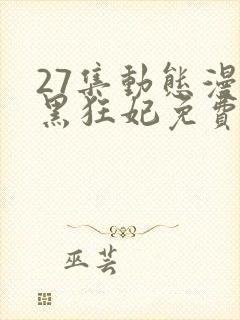 27集動態漫
黑狂妃免費
巫芸